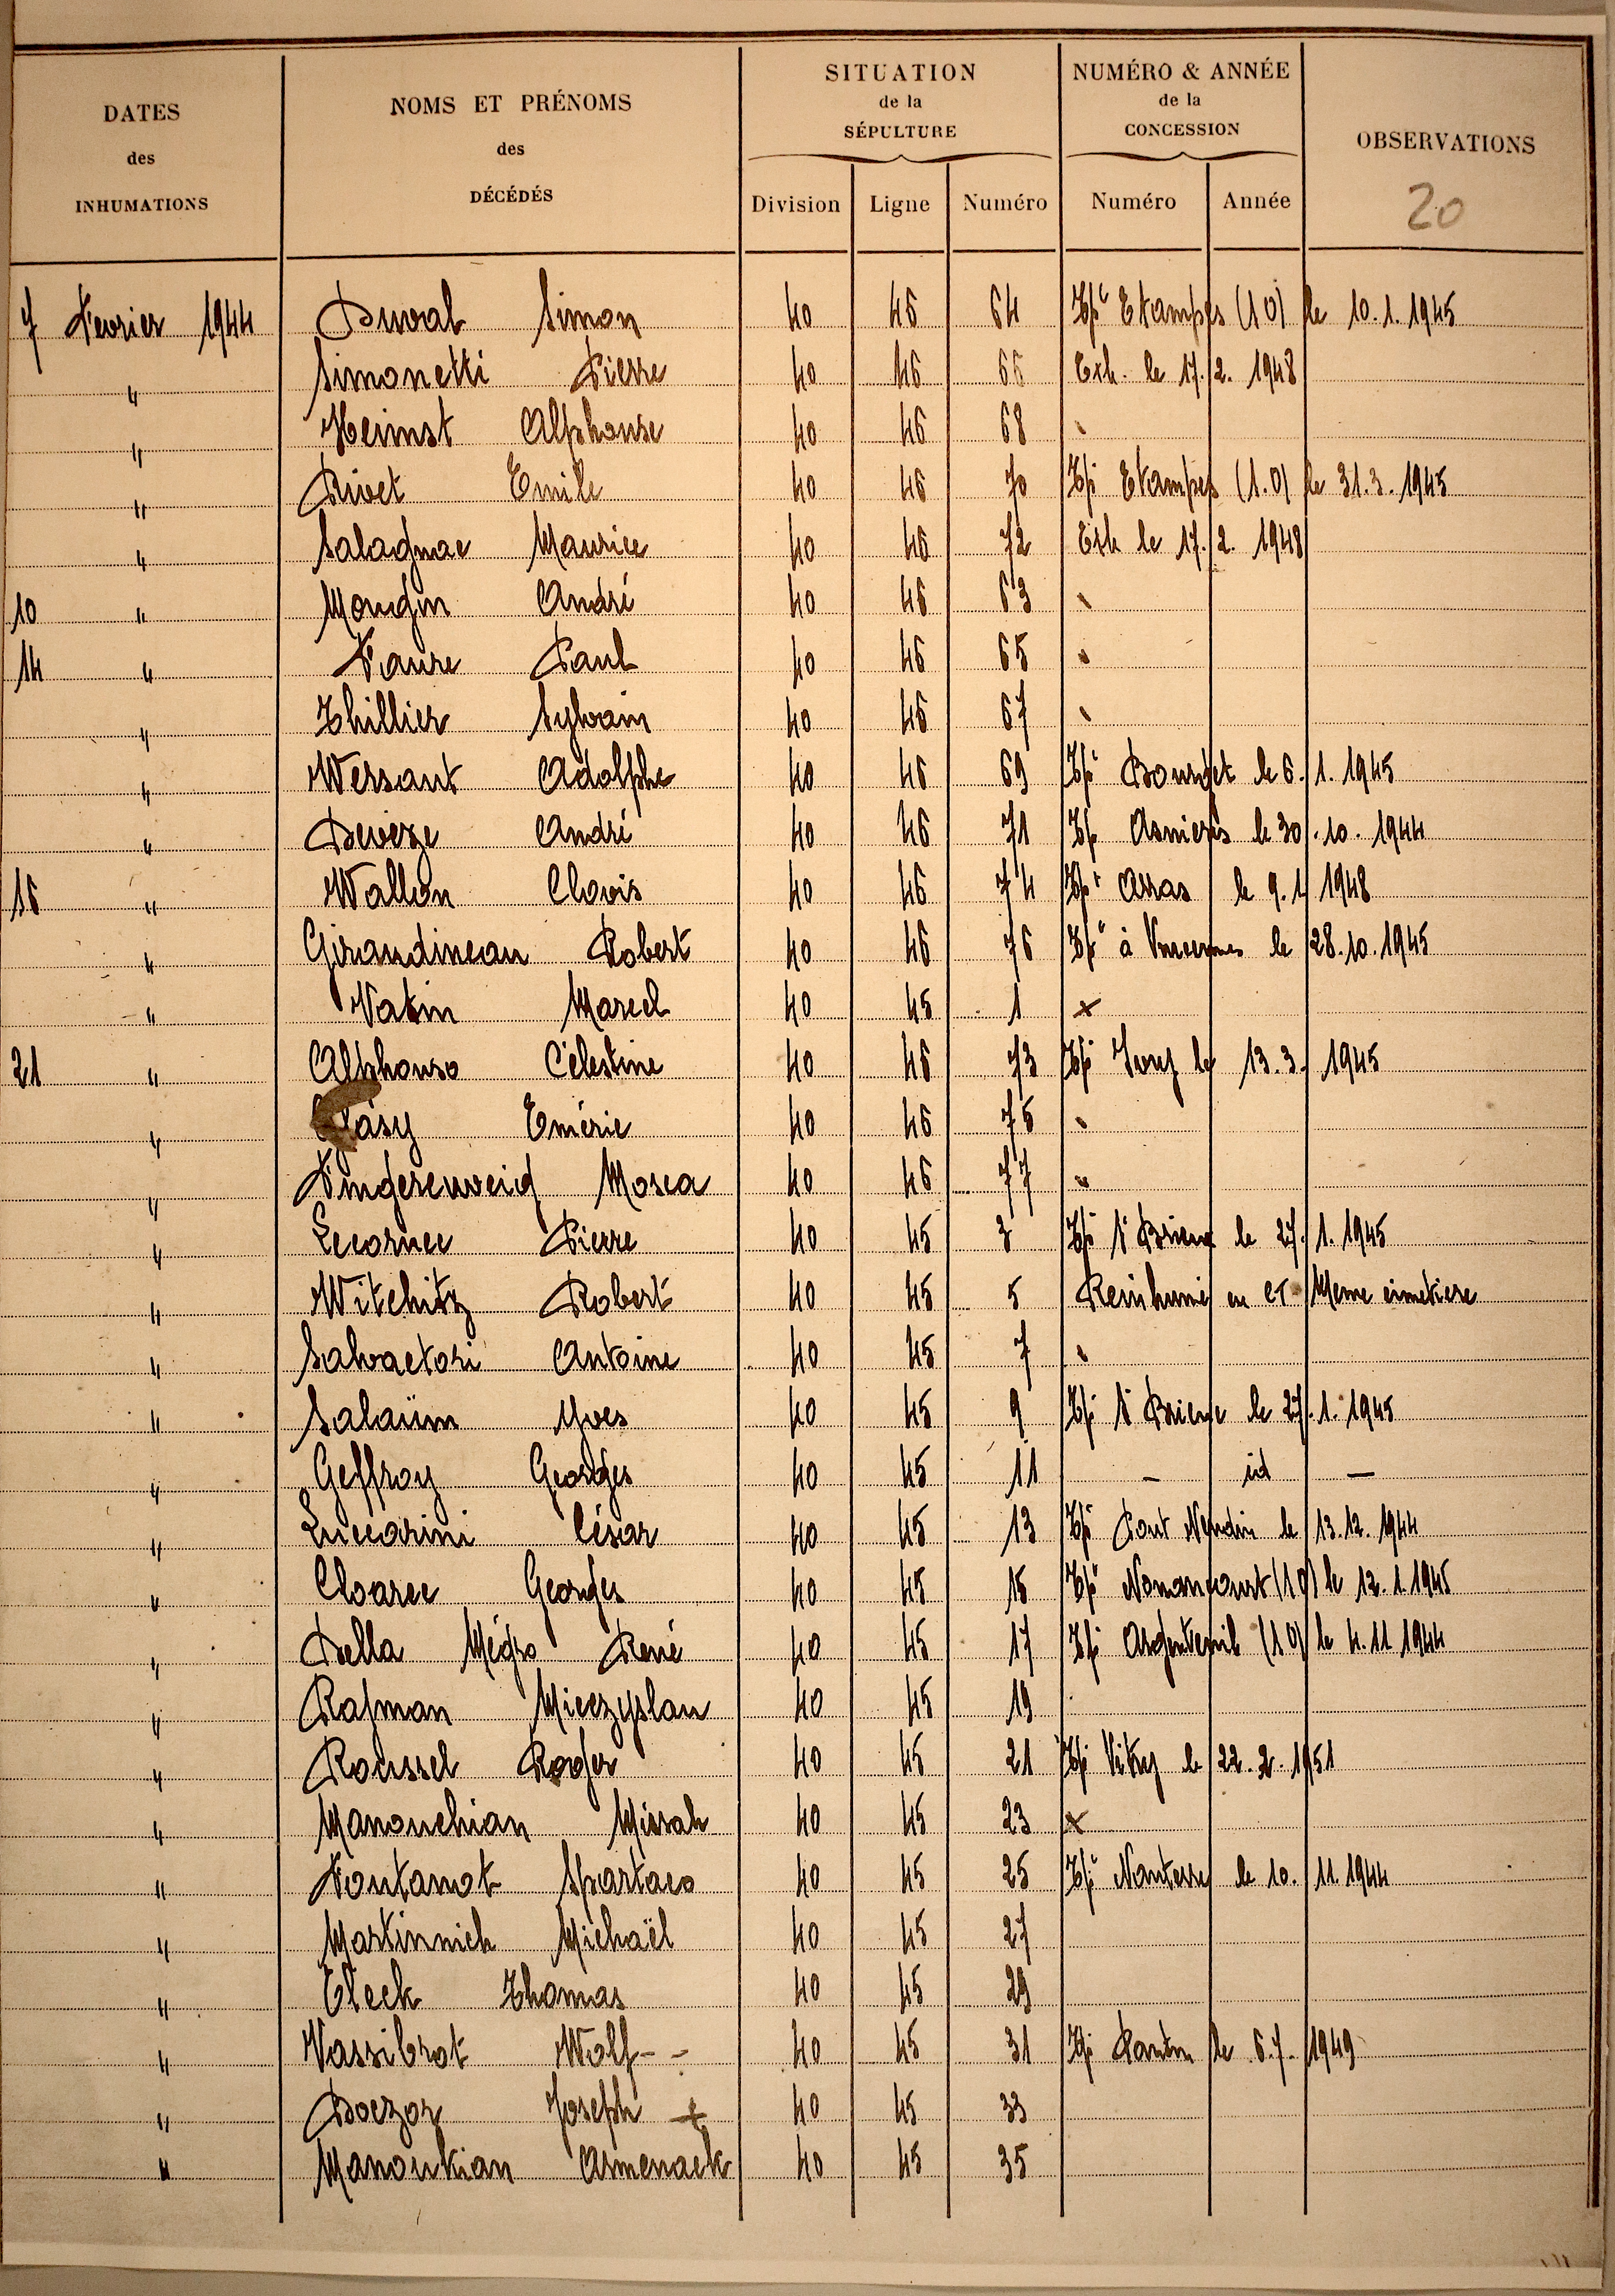 DATES des INHUMATIONS
NOMS ET PRÉNOMS des DÉCÉDÉS
SITUATION de la SÉPULTURE
NUMÉRO & ANNÉE de la CONCESSION
OBSERVATIONS
Division Ligne Numéro Numéro Année 20
7 Fevrier 1944 Duval Simon 40 46 64 Tpé Etampes (10) le 10.1.1945
" Simonetti Pierre 40 46 66 Exh. le 17.2.1948
" Heimst Alphonse 40 46 68 "
" Rivet Emile 40 46 70 Tpé Etampes (1.0) le 31.3.1945
" Salagnac Maurice 40 46 72 Exh le 17.2.1948
10 " Mougin André 40 46 63 "
14 " Faure Paul 40 46 65 "
" Thillier Sylvain 40 46 67 "
" Wersant Adolphe 40 46 69 Tpé Bourget le 6.1.1945
" Deveze André 40 46 71 Tpé Asnieres le 30.10.1944
16 " Wallon Clovis 40 46 74 Tpé Arras le 9.1 1948
" Giraudineau Robert 40 46 76 Tpé à Vincennes le 28.10.1945
" Vatin Marcel 40 45 1 x
21 " Alphonso Célestine 40 46 73 Tpé Ivry le 13.3.1945
" Emérie 40 46 75 "
" Fingereweig Mosca 40 46 77 "
" Lecornec Pierre 40 45 3 Tpé St Brieuc le 27.1.1945
" Witchitz Robert 40 45 5 Reinhumé en CT Meme cimetiere
" Salvactori Antoine 40 45 7 "
" Salaüm Yves 40 45 9 Tpé St Brieuc le 27.1.1945
" Geffroy Georges 40 45 11 — id —
" Luccarini César 40 45 13 Tpé Pont Vendin le 13.12.1944
" Cloarec Georges 40 45 15 Tpé Nonancourt (10) le 12.1.1945
" Della Mégro René 40 45 17 Tpé Argenteuil (10) le 4.11 1944
" Rajman Mieczyslau 40 45 19
" Roussel Roger 40 45 21 Tpé Vitry le 22.2.1951
" Manouchian Missak 40 45 23 x
" Fontamot Spartaco 40 45 25 Tpé Nanterre le 10.11.1944
" Martinnich Michaël 40 45 27
" Eleck Thomas 40 45 29
" Vassibrot Wolf - - 40 45 31 Tpé Pantin le 6.7.1949
" Boczor Joseph + 40 45 33
" Manoukian Armenack 40 45 35